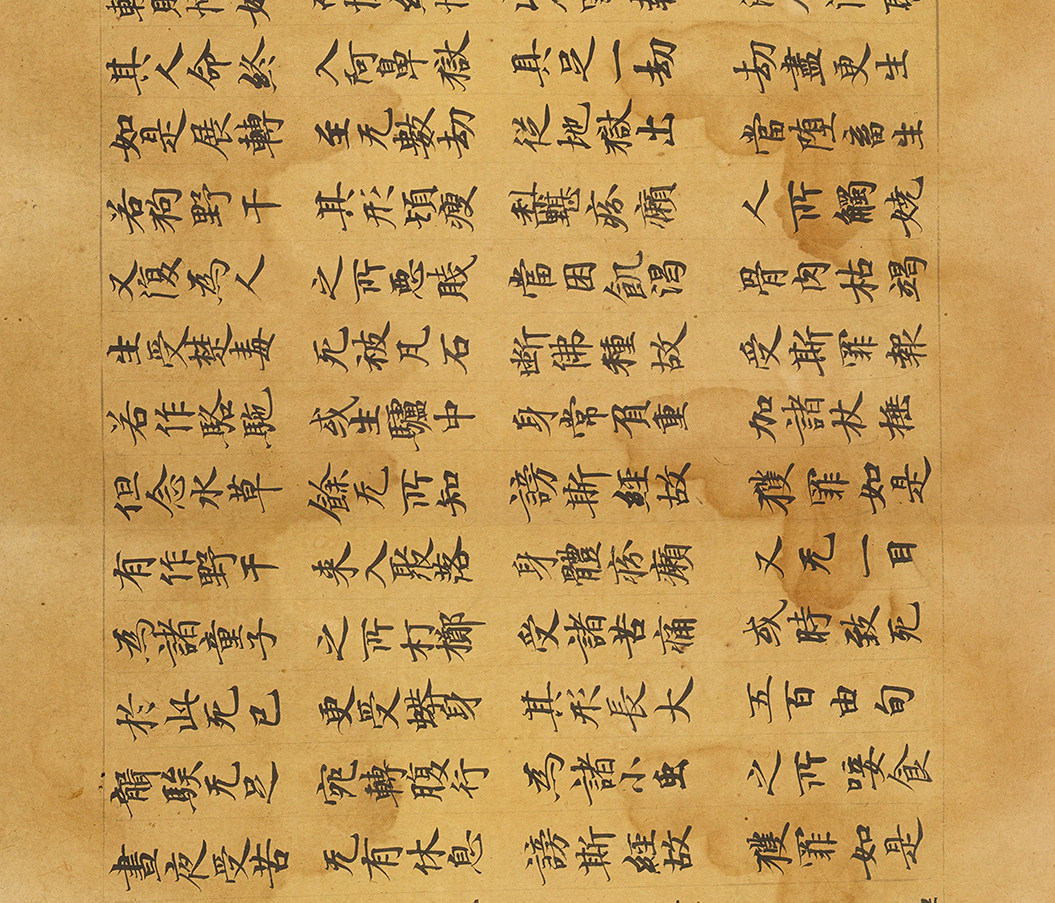 其人命終 入阿鼻獄 具足一劫 劫盡更生
如是展轉 至无數劫 從地獄出 當墮畜生
若狗野干 其形瘦 黧黮疥癩 人所觸嬈
又復為人 之所惡賤 當困飢渴 骨肉枯竭
生受楚毒 死被瓦石 斷佛種故 受斯罪報
若作駱駝 或生驢中 身常負重 加諸杖捶
但念水草 餘无所知 謗斯經故 獲罪如是
有作野干 来入聚落 身體疥癩 又无一目
為諸童子 之所打擲 受諸苦痛 或時致死
於此死已 更受蟒身 其形長大 五百由旬
聾騃无足 宛轉腹行 為諸小虫 之所唼食
晝夜受苦 无有休息 謗斯經故 獲罪如是